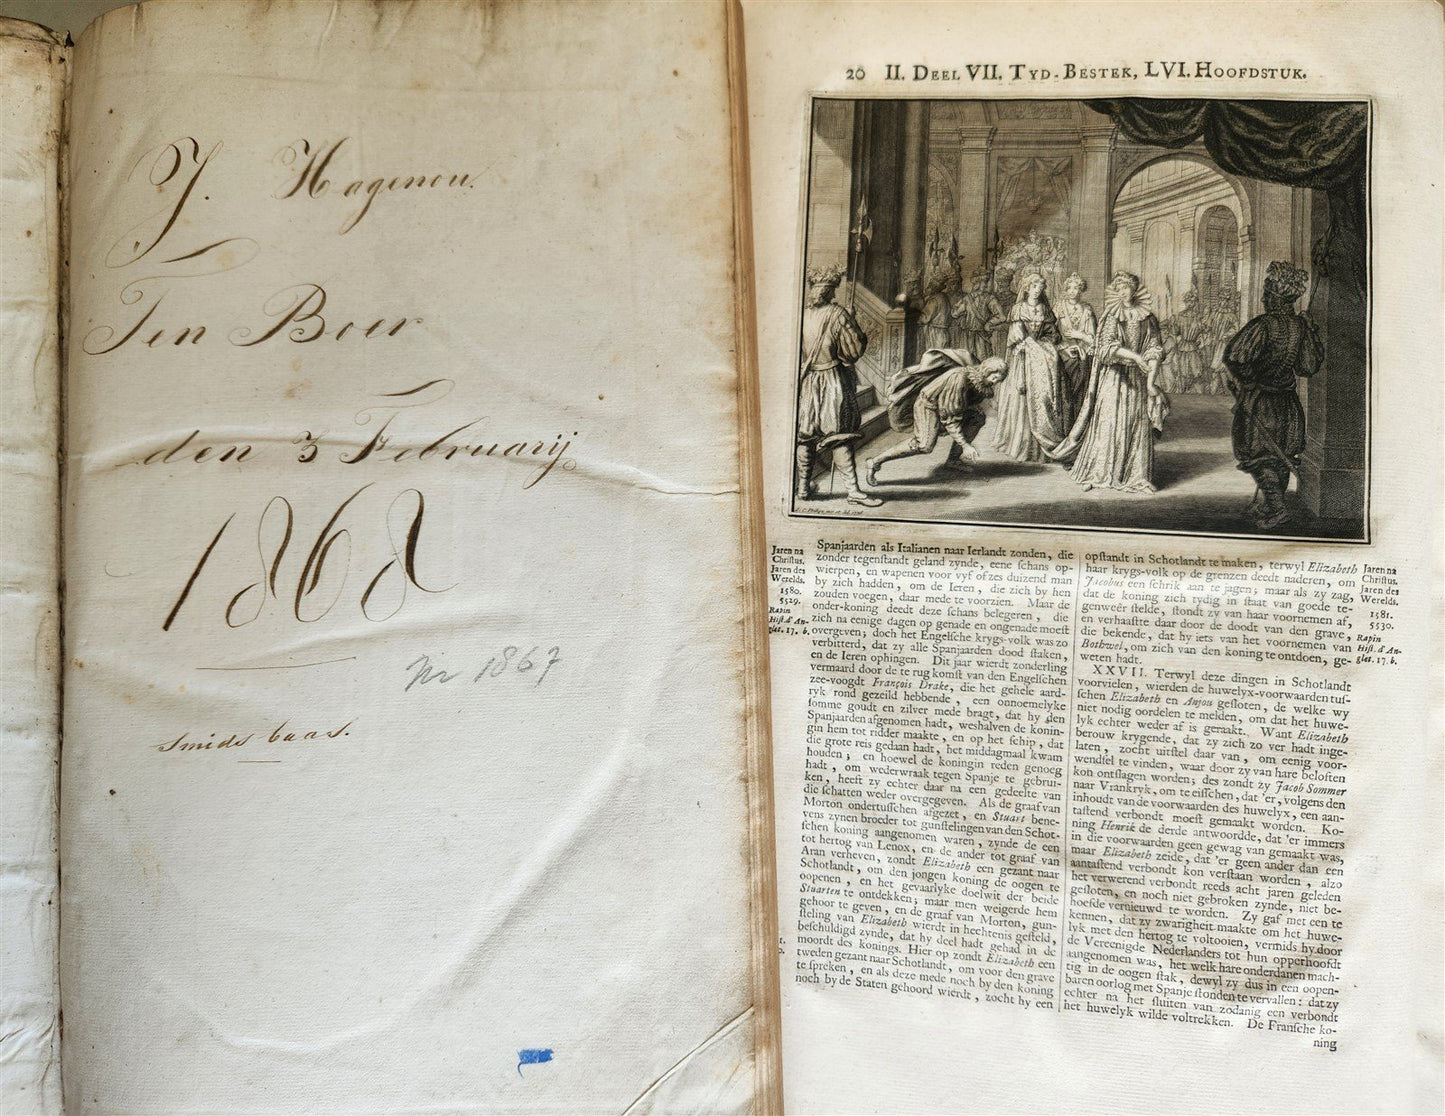 J. Hagenou.
Ten Boer
den 3 Februarij
1868
Nr 1867
Smids baas.
20 II. DEEL VII. TYD-BESTEK, LVI. HOOFDSTUK.
Jaren na
Christus.
Jaren des
Werelds.
1580.
5529.
Rapin
Hist. d'An-
glet. 17. b.
Spanjaarden als Italianen naar Ierlandt zonden, die
zonder tegenstandt geland zynde, eene schans op-
wierpen, en wapenen voor vyf of zes duizend man
by zich hadden, om de Ieren, die zich by hen
zouden voegen, daar mede te voorzien. Maar de
onder-koning deedt deze schans belegeren, die
zich na eenige dagen op genade en ongenade moest
overgeven; doch het Engelsche krygs-volk was zo
verbitterd, dat zy alle Spanjaarden dood staken,
en de Ieren ophingen. Dit jaar wierdt zonderling
vermaard door de te rug komst van den Engelschen
zee-voogdt François Drake, die het gehele aard-
ryk rond gezeild hebbende, een onnoemelyke
somme goudt en zilver mede bragt, dat hy den
Spanjaarden afgenomen hadt, weshalven de konin-
gin hem tot ridder maakte, en op het schip, dat
die grote reis gedaan hadt, het middagmaal kwam
houden; en hoewel de koningin reden genoeg
hadt, om wederwraak tegen Spanje te gebrui-
ken, heeft zy echter daar na een gedeelte van
die schatten weder overgegeven. Als de graaf van
Morton ondertusschen afgezet, en Stuart bene-
vens zynen broeder tot gunstelingen van den Schot-
schen koning aangenomen waren, zynde de een
tot hertog van Lenox, en de ander tot graaf van
Aran verheven, zondt Elizabeth een gezant naar
Schotlandt, om den jongen koning de oogen te
oopenen, en het gevaarlyke doelwit der beide
Stuarten te ontdekken; maar men weigerde hem
gehoor te geven, en de graaf van Morton, gun-
steling van Elizabeth wierdt in hechtenis gesteld,
beschuldigd zynde, dat hy deel hadt gehad in de
moordt des konings. Hier op zondt Elizabeth een
tweden gezant naar Schotlandt, om voor den grave
te spreken, en als deze mede noch by den koning
noch by de Staten gehoord wierdt, zocht hy een
opstandt in Schotlandt te maken, terwyl Elizabeth
haar krygs-volk op de grenzen deedt naderen, om
Jacobus een schrik aan te jagen; maar als zy zag,
dat de koning zich tydig in staat van goede te-
genweêr stelde, stondt zy van haar voornemen af,
en verhaastte daar door de doodt van den grave,
die bekende, dat hy iets van het voornemen van
Bothwel, om zich van den koning te ontdoen, ge-
weten hadt.
XXVII. Terwyl deze dingen in Schotlandt
voorvielen, wierden de huwelyx-voorwaarden tus-
schen Elizabeth en Anjou gesloten, de welke wy
niet nodig oordelen te melden, om dat het huwe-
lyk echter weder af is geraakt. Want Elizabeth
berouw krygende, dat zy zich zo ver hadt inge-
laten, zocht uitstel daar van, om eenig voor-
wendsel te vinden, waar door zy van hare beloften
kon ontslagen worden; des zondt zy Jacob Sommer
naar Vrankryk, om te eisschen, dat 'er, volgens den
inhoudt van de voorwaarden des huwelyx, een aan-
tastend verbondt moest gemaakt worden. Ko-
ning Henrik de derde antwoordde, dat 'er immers
in die voorwaarden geen gewag van gemaakt was,
maar Elizabeth zeide, dat 'er geen ander dan een
aantastend verbondt kon verstaan worden, alzo
het verwerend verbondt reeds acht jaren geleden
gesloten, en noch niet gebroken zynde, niet be-
hoefde vernieuwd te worden. Zy gaf met een te
kennen, dat zy zwarigheit maakte om het huwe-
lyk met den hertog te voltooien, vermids hy door
de Vereenigde Nederlanders tot hun opperhoofdt
aangenomen was, het welk hare onderdanen mach-
tig in de oogen stak, dewyl zy dus in een oopen-
baren oorlog met Spanje stonden te vervallen: dat zy
echter na het sluiten van zodanig een verbondt
het huwelyk wilde voltrekken. De Fransche ko-
ning
Jaren na
Christus.
Jaren des
Werelds.
1581.
5530.
Rapin
Hist. d'An-
glet. 17. b.